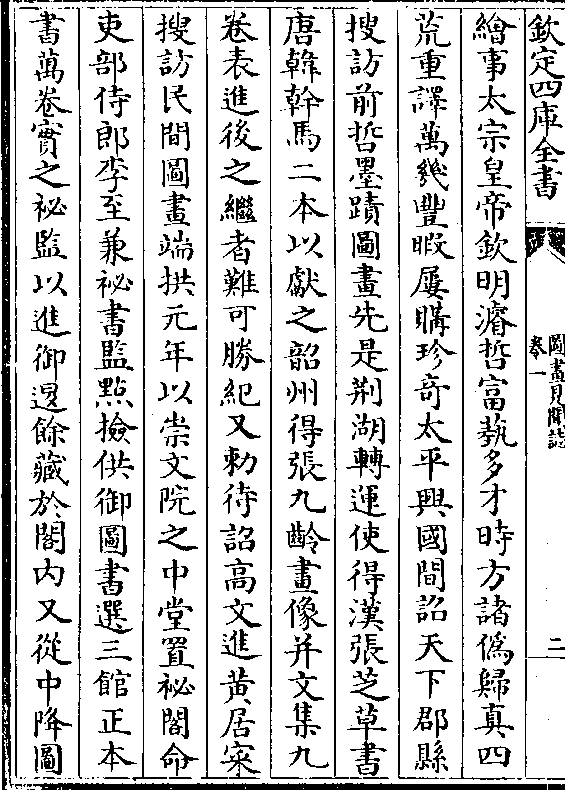 欽定四庫全書
圖畫見聞誌
卷一
二
繪事太宗皇帝欽明濬哲富藝多才時方諸僞歸真四
荒重譯萬幾豐暇屢購珍奇太平興國間詔天下郡縣
搜訪前哲墨蹟圖畫先是荆湖轉運使得漢張芝草書
唐韓幹馬二本以獻之韶州得張九齡畫像并文集九
卷表進後之繼者難可勝紀又勅待詔高文進黃居寀
搜訪民間圖畫端拱元年以崇文院之中堂置祕閣命
吏部侍郎李至兼祕書監㸃檢供御圖書選三館正本
書萬卷實之祕監以進御退餘藏於閣内又從中降圖